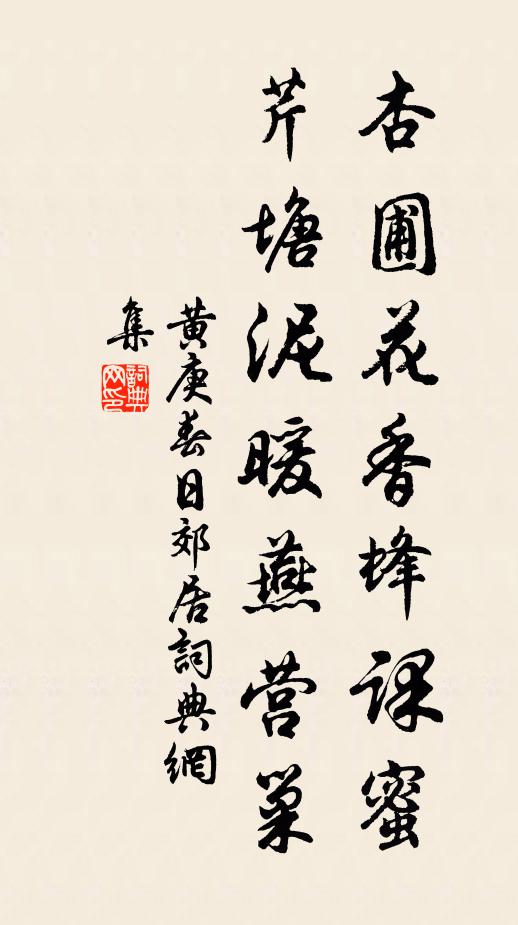 杏圃花香蜂课蜜
芹塘泥暖燕营巢
黄庚春日郊居詞典網
集
詞典
网印